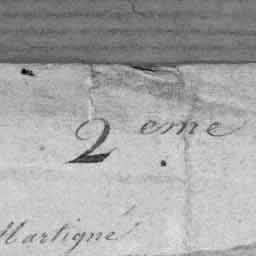 2 eme.
Martigné